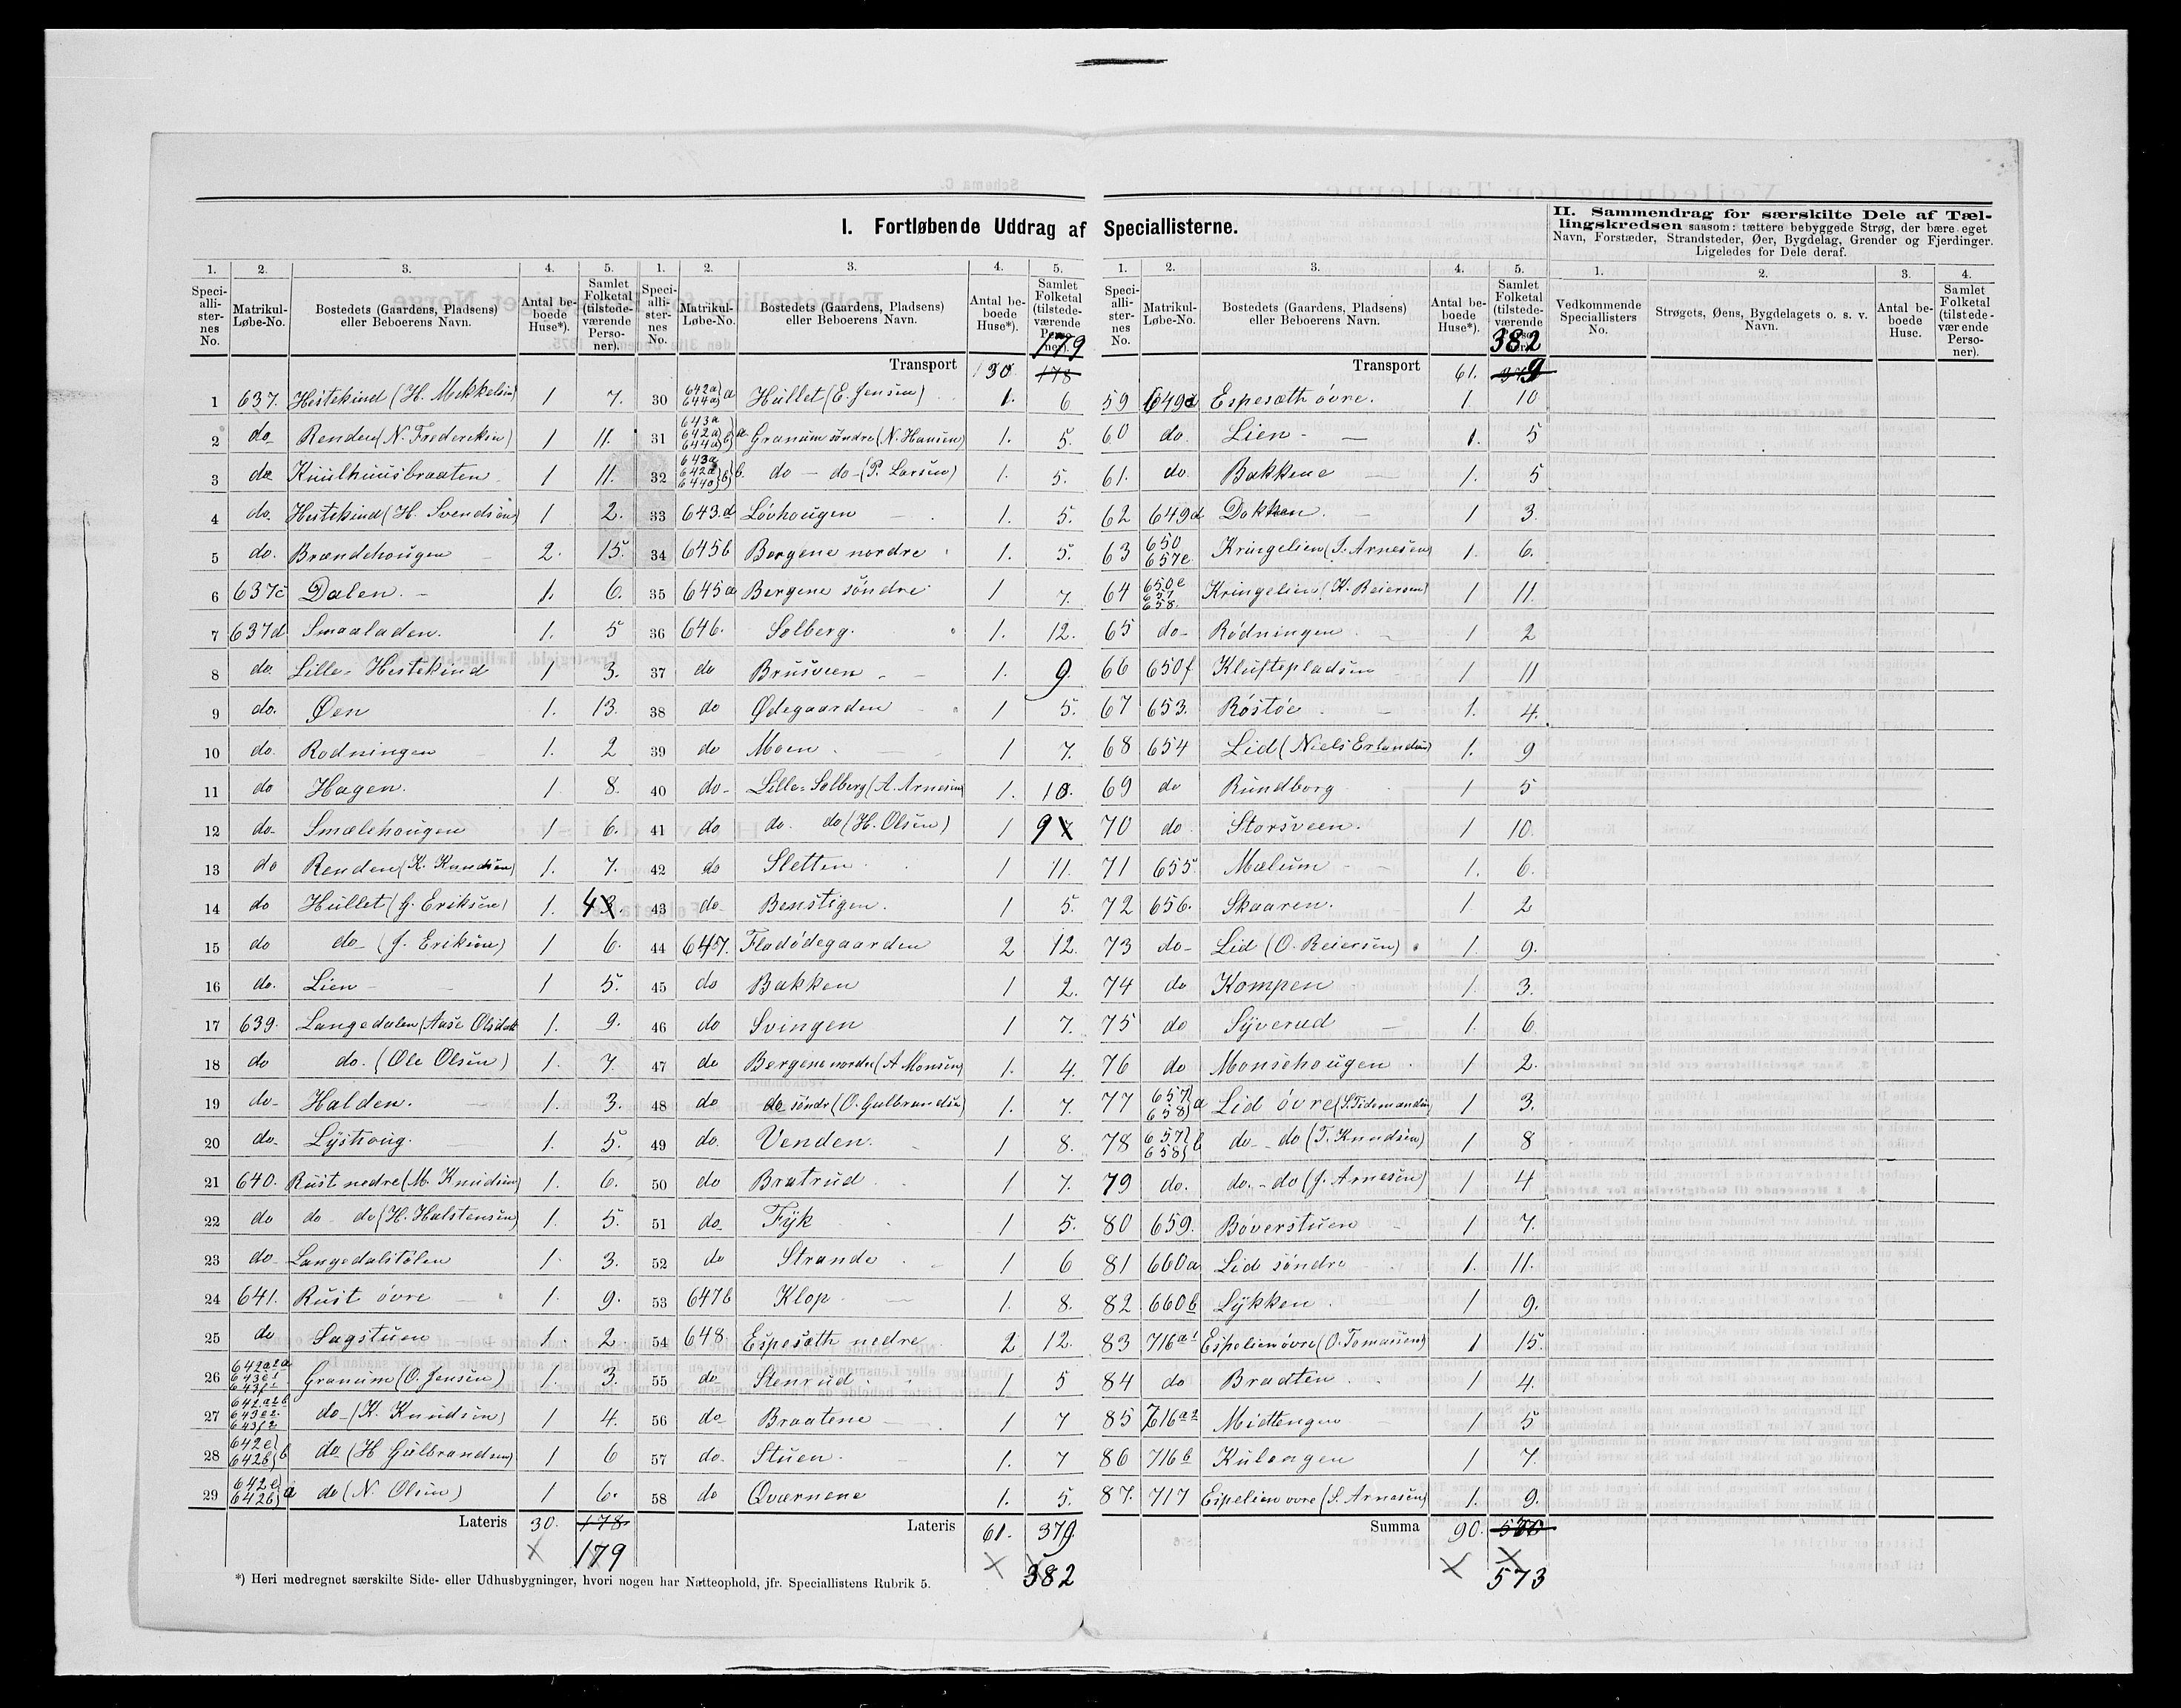 I. Fortløbende Uddrag af Speciallisterne.
II. Sammendrag for særskilte Dele af Tællingskredsen saasom: tættere bebyggede Strøg, der bære eget
Navn, Forstæder, Strandsteder, Øer, Bygdelag, Grender og Fjerdinger.
Ligeledes for Dele deraf.
1. 2. 3. 4. 5.
Speciallisternes No. Matrikul-Løbe-No. Bostedets (Gaardens, Pladsens) eller Beboerens Navn. Antal beboede Huse*). Samlet Folketal (tilstedeværende Personer).
1 637. Hestekind (H. Mikkelsen) 1 7.
2 do Renden (N. Frederiksen) 1 11.
3 do Kuulhuusbraaten 1 11.
4 do. Hestekind (H. Svendsen) 1 2.
5 do. Brændehougen 2. 15.
6 637c Dalen. 1. 6.
7 637d Smaaladen. 1. 5
8 do. Lille-Hestekind 1 3.
9 do. Øen 1. 13.
10 do. Rodningen 1. 2
11 do Hagen. 1. 8.
12 do- Smælehougen 1 6.
13 do Renden (K. Knudsen) 1. 7.
14 do Hullet (G. Eriksen) 1. 4
15 do do- (J. Eriksen) 1 6.
16 do. Lien 1 5.
17 639. Langedalen (Aase Olsdatt 1. 9.
18 do do. (Ole Olsen) 1. 7.
19 do- Halden. 1. 3.
20 do- Lysthoug. 1. 5.
21 640. Rust nedre (M. Knudsen) 1. 6.
22 do do do (H. Halstensen) 1. 5.
23 do- Langedalstølen 1. 3.
24 641. Rust övre 1. 9.
25 do Sagstuen 1. 2.
26 642a2a 643e1 643f1 Granum (O. Jensen) 1. 3.
27 642a2b 643e2 643f2 do- (K. Knudsen) 1 4.
28 642e 642b b do (H Gulbrandsen) 1 6
29 642e 642b a do (N. Olsen) 1 6.
Lateris 30. 178
179
1. 2. 3. 4. 5.
Speciallisternes No. Matrikul-Løbe-No. Bostedets (Gaardens, Pladsens) eller Beboerens Navn. Antal beboede Huse*). Samlet Folketal (tilstedeværende Personer).
179
Transport 30 178
30 642a 644a a Hullet (E. Jensen) 1. 6
31 643a 642a 644a b a Granum söndre (N. Hansen) 1. 5.
32 643a 642a 644a b b. do - do - (P. Larsen) 1. 5.
33 643.d Lövhougen 1. 5.
34 645b Bergene nordre 1. 5.
35 645a Bergene söndre 1 7.
36 646. Solberg. 1. 12.
37 do Brusveen 1. 9.
38 do Ødegaarden 1 5.
39 do Moen 1 7.
40 do- Lille-Solberg (A. Arnesen) 1. 10.
41 do do. do (H. Olsen) 1 9
42 do Sletten 1 11.
43 do Benstigen. 1 5.
44 647. Fladödegaarden 2 12.
45 do Bakken 1 2.
46 do Svingen 1 7.
47 do Bergene nordre (A Monsen) 1. 4.
48 do do söndr (O. Gulbrandsen) 1. 7.
49 do. Venden. 1 8.
50 do Bratrud 1 7.
51 do- Fyk 1 5.
52 do Strande 1 6
53 647b Klop 1. 8.
54 648. Espesæth nedre 2 12.
55 do- Stenrud 1 5
56 do- Braatene 1 7
57 do. Stuen. 1. 7
58 do Qværnene 1. 5.
Lateris 61. 379
382
1. 2. 3. 4. 5.
Speciallisternes No. Matrikul-Løbe-No. Bostedets (Gaardens, Pladsens) eller Beboerens Navn. Antal beboede Huse*). Samlet Folketal (tilstedeværende Personer).
382
Transport 61. 379
59 649a Espesæth övre. 1. 10
60 do. Lien 1. 5
61. do Bakkene 1. 5
62 649d Dokken. 1 3.
63 650 657e Kringelien (T. Arnesen) 1. 6.
64 650e 657 658. Kringelien (K. Reiersen) 1 11.
65 do- Rödningen 1 2
66 650f Kluftepladsen 1 11
67 653. Röstöe 1. 4.
68 654 Lid (Niels Erlandsen) 1. 9
69 do Rundborg 1 5
70 do. Storsveen. 1 10.
71 655. Mælum 1. 6.
72 656. Skaaren. 1. 2
73 do- Lid (O. Reiersen) 1. 9.
74 do Kompen 1. 3.
75 do Syverud 1. 6
76 do Monsehougen 1 2.
77 657 658 a Lid övre (S. Tidemandsen) 1 3.
78 657 658 b do- do (T. Knudsen) 1 8
79 do. do.- do (J. Arnesen) 1 4
80 659. Böverstuen 1 7.
81 660a Lid söndre 1. 11.
82. 660b Lykken 1 9.
83 716a1 Espelien övre (O. Tomassen) 1 15.
84 do Bradten 1 4.
85 716a2 Midtengen 1 5
86 716b Kulongen 1 7.
87. 717 Espelien övre (S. Arnesen) 1. 9.
Summa 90.
573
1. 2. 3. 4.
Vedkommende Speciallisters No. Strøgets, Øens, Bygdelagets o. s. v. Navn. Antal beboede Huse. Samlet Folketal (tilstedeværende Personer).
*) Heri medregnet særskilte Side- eller Udhusbygninger, hvori nogen har Natteophold, jfr. Speciallistens Rubrik 5.